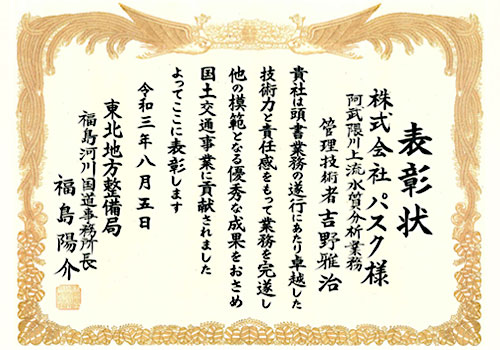 表彰状
株式会社パスク様
阿武隈川上流水質分析業務
管理技術者 吉野雅治
貴社は頭書業務の遂行にあたり卓越した
技術力と責任感をもって業務を完遂し
他の模範となる優秀な成果をおさめ
国土交通事業に貢献されました
よってここに表彰します
令和三年八月五日
東北地方整備局
福島河川国道事務所長
福島陽介